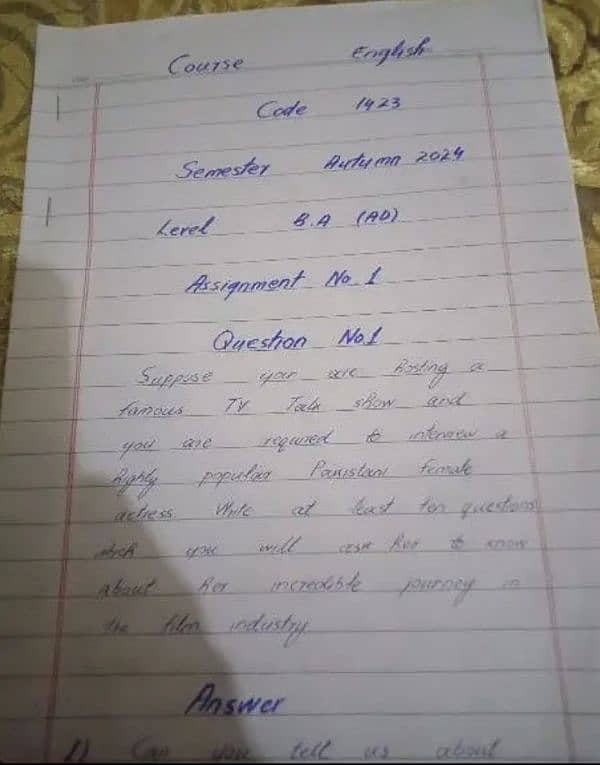 Course English
Code 1423
Semester Autumn 2024
Level B.A (AD)
Assignment No 1
Question No 1
Suppose you are hosting a
famous TV Talk show and
you are required to interview a
highly popular Pakistani female
actress Write at least ten questions
which you will ask her to know
about her incredible journey in
the film industry
Answer
1) Can you tell us about